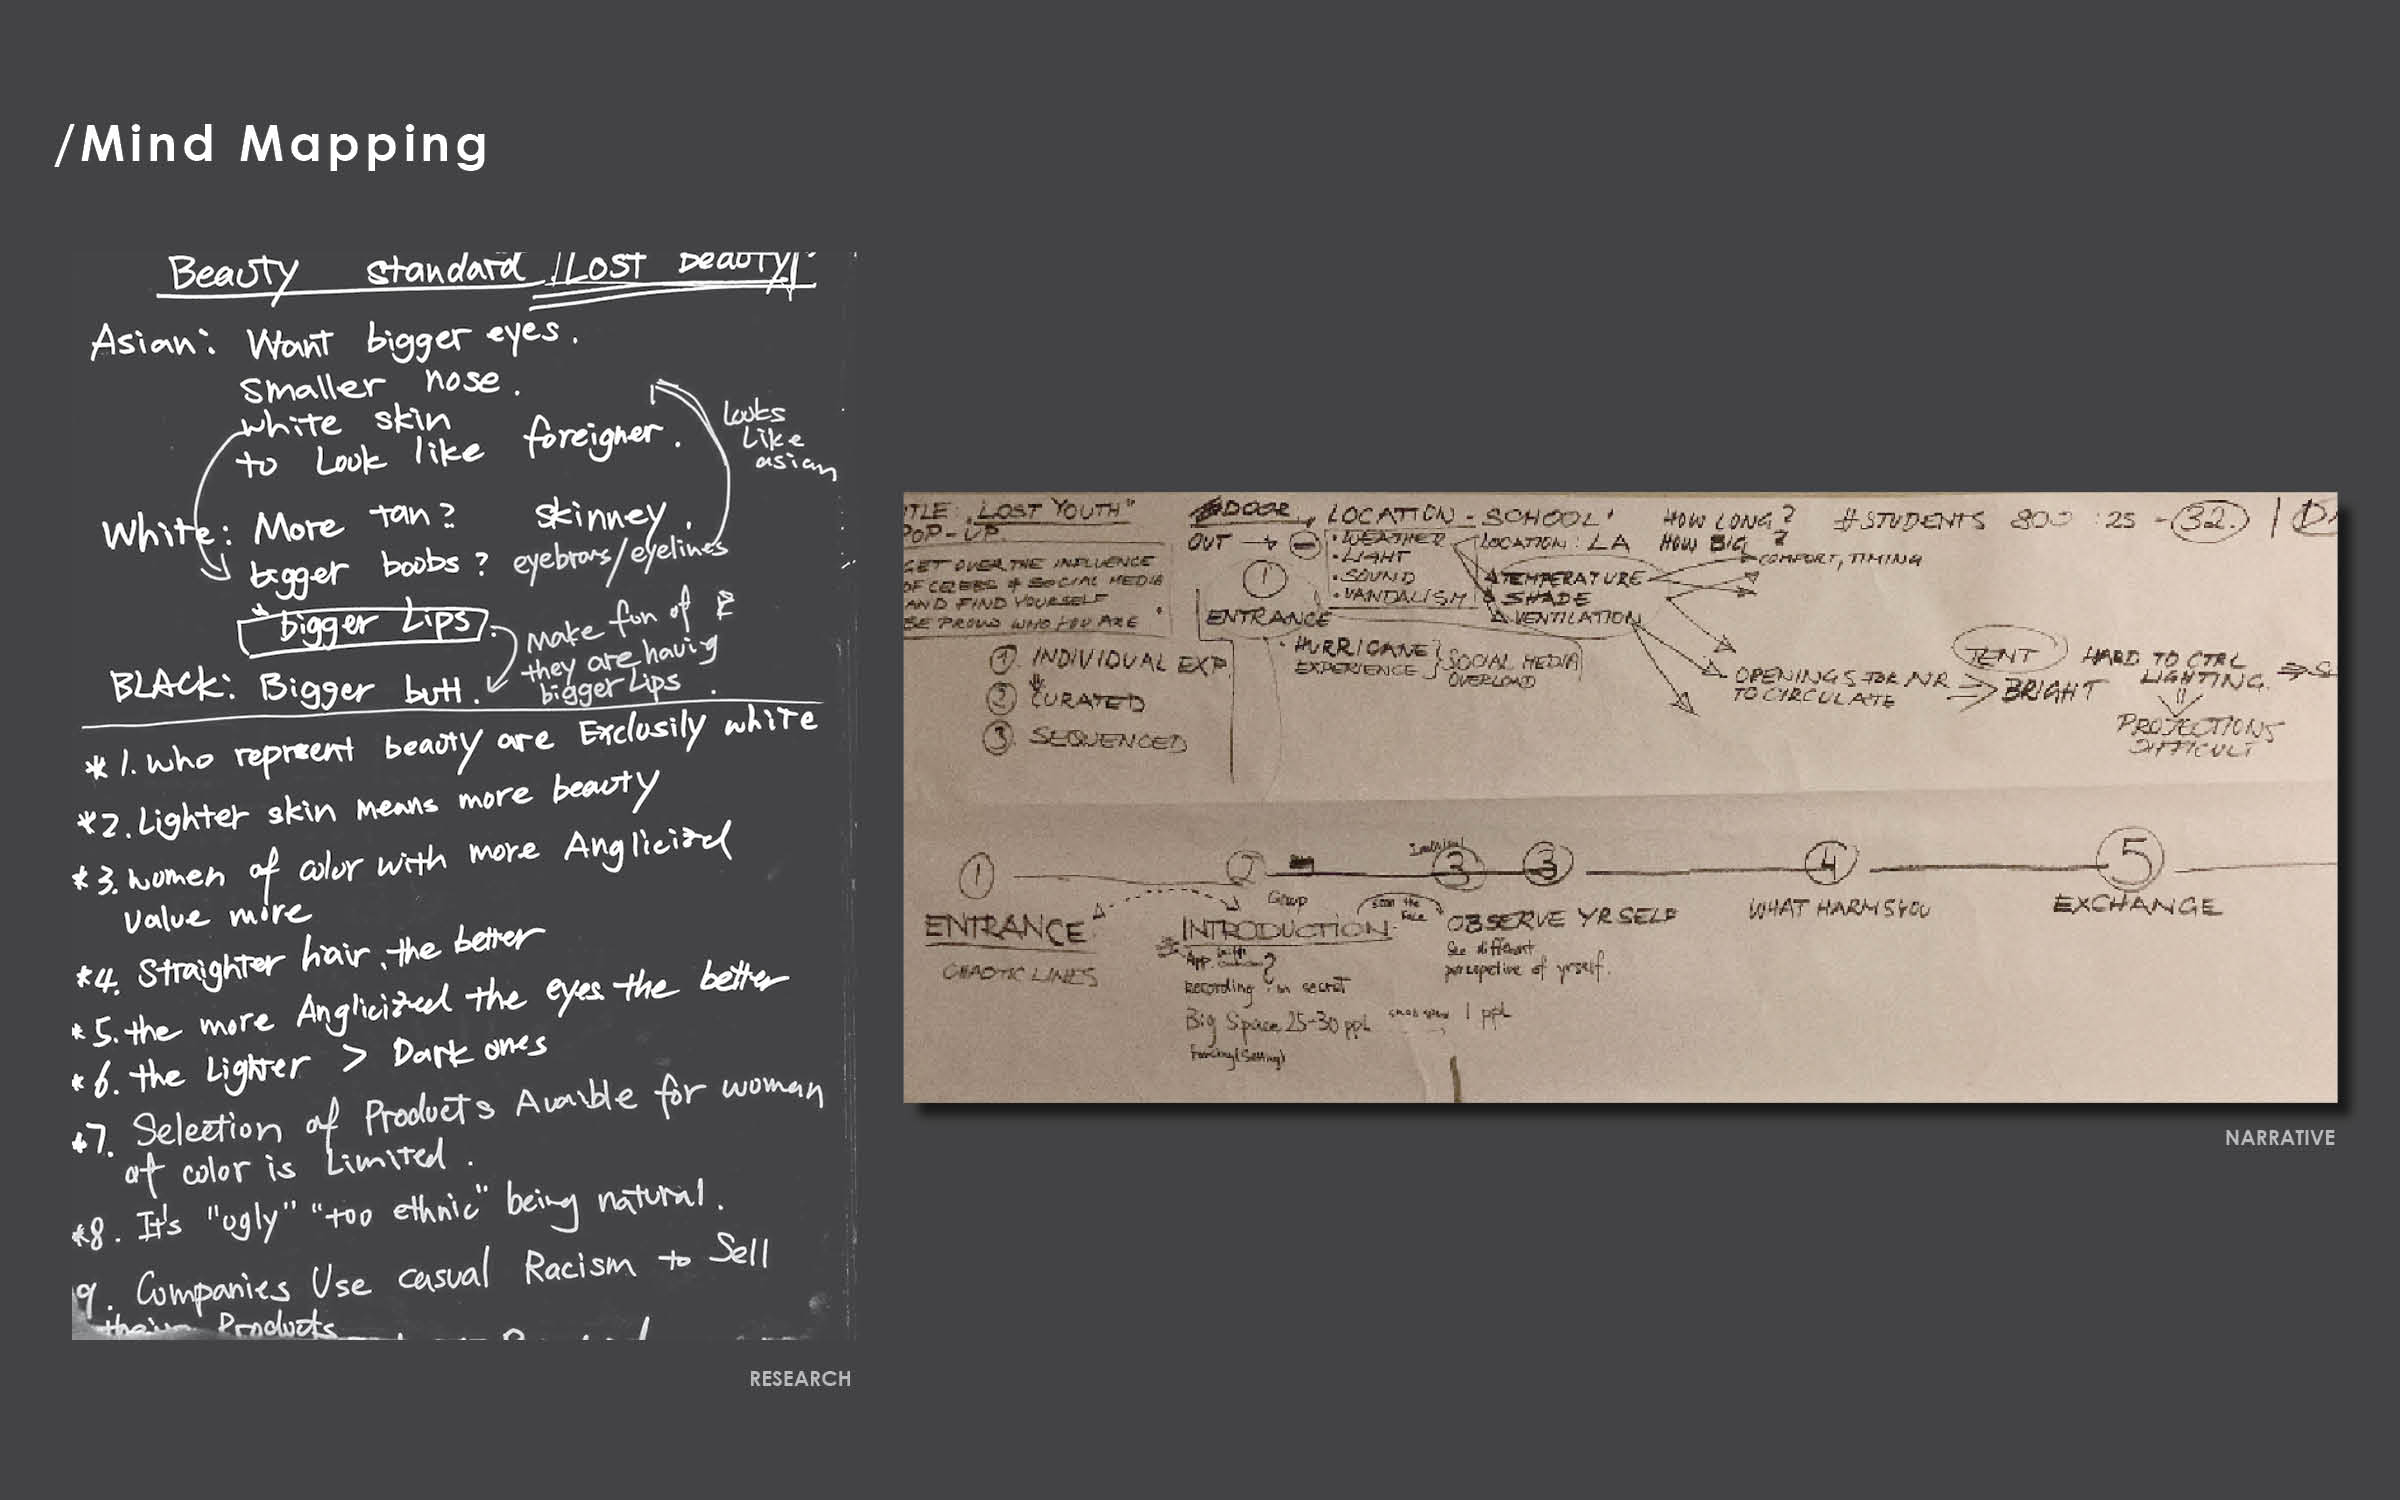 /Mind Mapping
Beauty standard "Lost beauty"
Asian: Want bigger eyes.
smaller nose.
white skin
to Look like foreigner.
Looks
Like
asian
White: More tan? skinney.
bigger boobs? eyebrows/eyelines
bigger Lips.
make fun of
they are having
bigger Lips
BLACK: Bigger butt.
*1. who represent beauty are Exclusily white
*2. Lighter skin means more beauty
*3. women of color with more Anglicized
value more
*4. Straighter hair, the better
*5. the more Anglicized the eyes the better
*6. the Lighter > Dark ones
*7. Selection of Products Avaible for woman
of color is Limited.
*8. It's "ugly" "too ethnic" being natural.
9. Companies Use casual Racism to Sell
their Products
RESEARCH
TLE: "LOST YOUTH"
POP-UP
GET OVER THE INFLUENCE
OF CELEBS & SOCIAL MEDIA
AND FIND YOURSELF
BE PROUD WHO YOU ARE
1 INDIVIDUAL EXP.
2 CURATED
3 SEQUENCED
DOOR
OUT
1
ENTRANCE
• HURRICANE
EXPERIENCE
SOCIAL MEDIA
OVERLOAD
LOCATION - SCHOOL
• WEATHER
• LIGHT
• SOUND
• VANDALISM
LOCATION: LA
TEMPERATURE
SHADE
VENTILATION
HOW LONG?
HOW BIG?
COMFORT, TIMING
# STUDENTS 800 : 25 - 32.
OPENINGS FOR AIR
TO CIRCULATE
TENT
BRIGHT
HARD TO CTRL
LIGHTING.
PROJECTIONS
DIFFICULT
1 2 3 3 4 5
ENTRANCE
CHAOTIC LINES
Group
INTRODUCTION
App.
Recording in secret
Big Space 25-30 ppl
scan the
face
OBSERVE YRSELF
See different
percepetive of yrself.
1 ppl
WHAT HARMS YOU
EXCHANGE
NARRATIVE